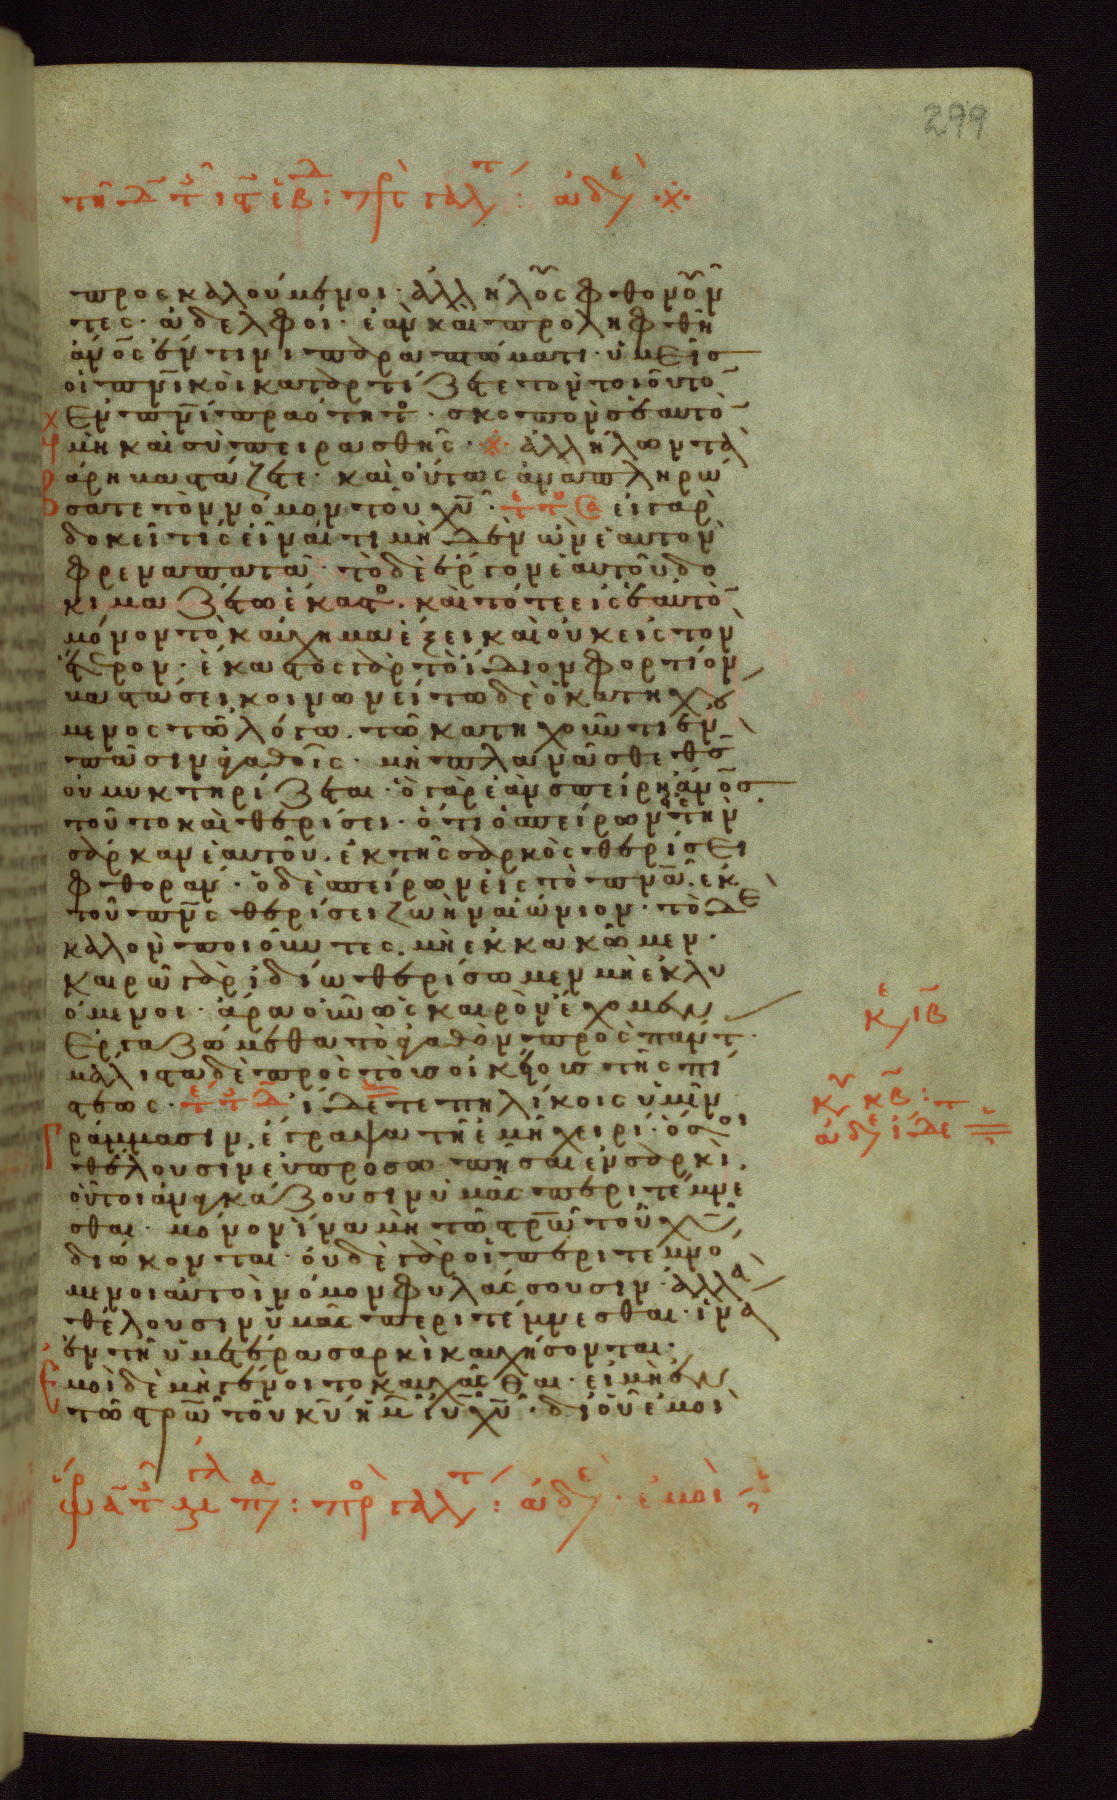 299
προσκαλούμενοι· ἀλλήλοις φθονοῦν
τες· ἀδελφοί· ἐὰν καὶ προληφθῆ
ἄνος ἔν τινι παραπτώματι· ὑμεῖσ
οἱ πνικοὶ καταρτίζετε τὸν τοιοῦτο
ἐν πνι πραότητο· σκοπῶν σεαυτὸ
μὴ καὶ σὺ πειρασθῆς· ἀλλήλων τὰ
βάρη βαστάζετε· καὶ οὕτως ἀναπληρώ
σατε τὸν νόμον τοῦ χυ· εἰ γὰρ
δοκεῖ τίς εἶναί τι μὴδὲν ὢν ἑαυτὸν
φρεναπατᾶ· τὸ δὲ ἔργον ἑαυτοῦ δο
κιμαζέτω ἕκαστο· καὶ τότε εἰς ἑαυτὸ
μόνον τὸ καύχημα ἕξει καὶ οὐκ εἰς τὸν
ἕτερον· ἕκαστος γὰρ τὸ ἴδιον φορτίον
βαστάσει κοινωνείτω δὲ ὁ κατηχού
μενος τῶ λόγω· τῶ κατηχοῦντι ἐν
πᾶσιν ἀγαθοῖς· μὴ πλανᾶσθε θσ
οὐ μυκτηρίζεται· ὃ γὰρ ἐὰν σπείρη ἄνοσ
τοῦτο καὶ θερίσει· ὅτι ὁ σπείρων εἰς τὴν
σάρκαν ἑαυτοῦ· ἐκ τῆς σαρκὸς θερίσει
φθοράν· ὁ δὲ σπείρων εἰς τὸ πνα· ἐκ
τοῦ πνς θερίσει ζωὴν αἰώνιον· τὸ δὲ
καλὸν ποιοῦντες· μὴ ἐκκακῶμεν·
καιρῶ γὰρ ἰδίω θερίσωμεν μὴ ἐκλυ
όμενοι· ἄρα οὖν ὡς καιρὸν ἔχομεν
ἐργαζώμεθα τὸ ἀγαθὸν πρὸς πάντ
μάλιστα δὲ πρὸς τοὺσ οἰκείουσ τῆς πί
στεως· ἴδετε πηλίκοις ὑμῖν
γράμμασιν· ἔγραψα τῆ ἐμῆ χειρί· ὅσοι
θέλουσιν εὐπροσωπῆσαι ἐν σαρκί·
οὗτοι ἀναγκάζουσιν ὑμᾶς περιτέμνε
σθαι· μόνον ἵνα μὴ τῶ στρω τοῦ χυ
διώκονται· οὐδὲ γὰρ οἱ περιτεμνό
μενοι αὐτοὶ νόμον φυλάσσουσιν· ἀλλὰ
θέλουσιν ὑμᾶς περιτέμνεσθαι· ἵνα
ἐν τῆ ὑμετέρα σαρκὶ καυχήσονται·
ἐμοὶ δὲ μὴ γένοιτο καυχᾶσθαι· εἰ μὴ ἐν
τῶ στρω τοῦ κυ ἡμ ιυ χυ· δι οὗ ἐμοὶ